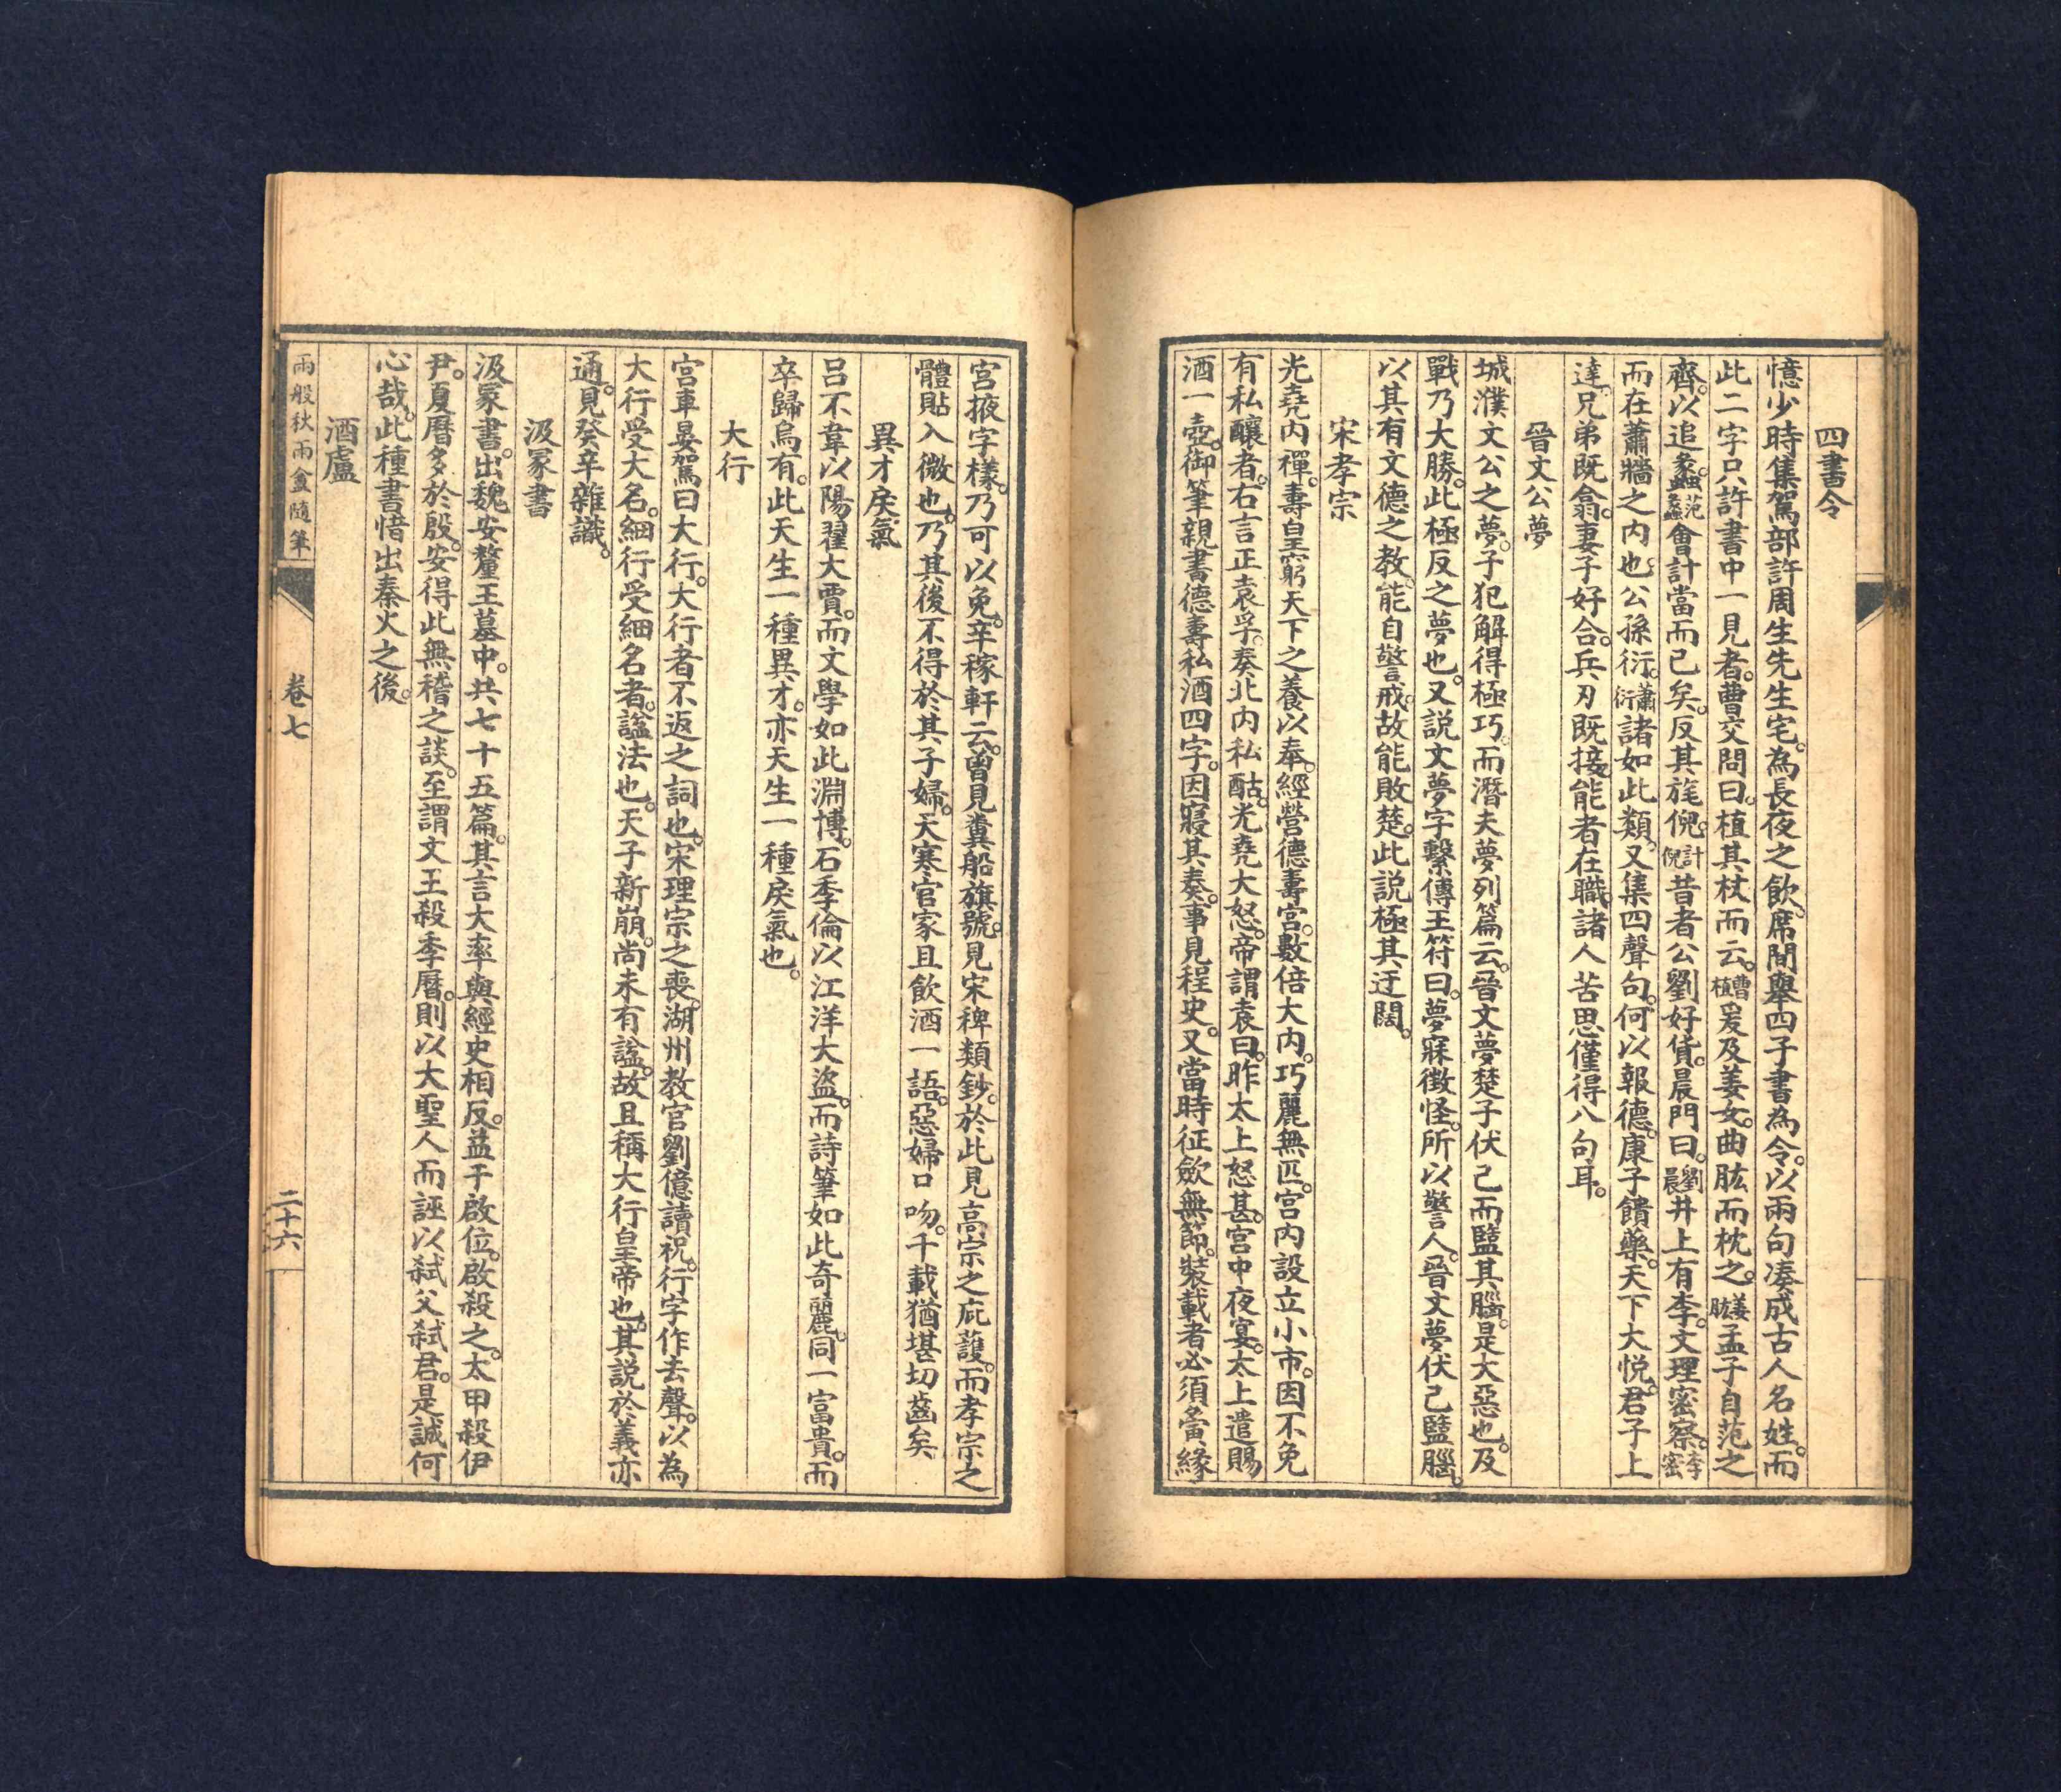 四書令
憶少時集駕部許周生先生宅。為長夜之飲。席間舉四子書為令。以兩句湊成古人名姓。而
此二字只許書中一見者。曹交問曰。植其杖而云。曹植爰及姜女。曲肱而枕之。姜肱孟子自范之
齊。以追蠡。范蠡會計當而已矣。反其旄倪。計倪昔者公劉好貨。晨門曰。劉晨井上有李。文理密察。李密
而在蕭牆之內也。公孫衍。蕭衍諸如此類。又集四聲句。何以報德。康子饋藥。天下大悅。君子上
達。兄弟既翕。妻子好合。兵刃既接。能者在職。諸人苦思僅得八句耳。
晉文公夢
城濮文公之夢。子犯解得極巧。而潛夫夢列篇云。晉文夢楚子伏己而盬其腦。是大惡也。及
戰乃大勝。此極反之夢也。又説文夢字繫傳王符曰。夢寐徵怪。所以警人。晉文夢伏己盬腦。
以其有文德之教。能自警戒。故能敗楚。此説極其迂闊。
宋孝宗
光堯內禪。壽皇窮天下之養以奉。經營德壽宮。數倍大內。巧麗無匹。宮內設立小市。因不免
有私釀者。右言正袁孚。奏北內私酤。光堯大怒。帝謂袁曰。昨太上怒甚。宮中夜宴。太上遣賜
酒一壺。御筆親書德壽私酒四字。因寢其奏。事見程史。又當時征歛無節。裝載者必須夤緣
宮掖字樣。乃可以免。辛稼軒云。曾見糞船旗號。見宋稗類鈔。於此見高宗之庇護。而孝宗之
體貼入微也。乃其後不得於其子婦。天寒官家且飲酒一語。惡婦口吻。千載猶堪切齒矣
異才戾氣
呂不韋以陽翟大賈。而文學如此淵博。石季倫以江洋大盜。而詩筆如此奇麗。同一富貴。而
卒歸烏有。此天生一種異才。亦天生一種戾氣也。
大行
宮車晏駕曰大行。大行者不返之詞也。宋理宗之喪。湖州教官劉億讀祝。行字作去聲。以為
大行受大名。細行受細名者。諡法也。天子新崩。尚未有諡。故且稱大行皇帝也。其説於義亦
通。見癸辛雜識。
汲冢書
汲冢書。出魏安釐王墓中。共七十五篇。其言大率與經史相反。益干啟位。啟殺之。太甲殺伊
尹。夏曆多於殷。安得此無稽之談。至謂文王殺季曆。則以大聖人而誣以弒父弒君。是誠何
心哉。此種書惜出秦火之後。
酒盧
兩般秋雨盦隨筆 卷七 二十六